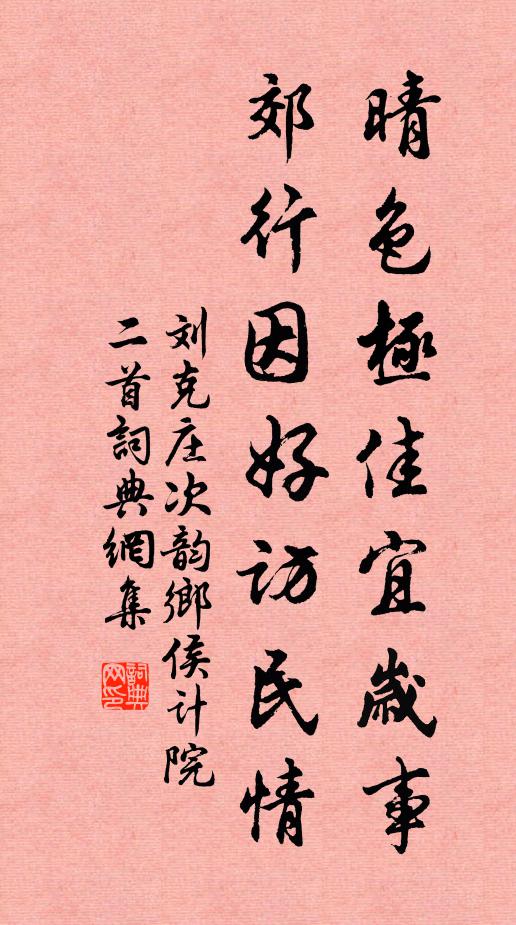 晴色極佳宜歲事
郊行因好访民情
刘克庄次韵鄉侯计院
二首詞典網集
詞典
网印